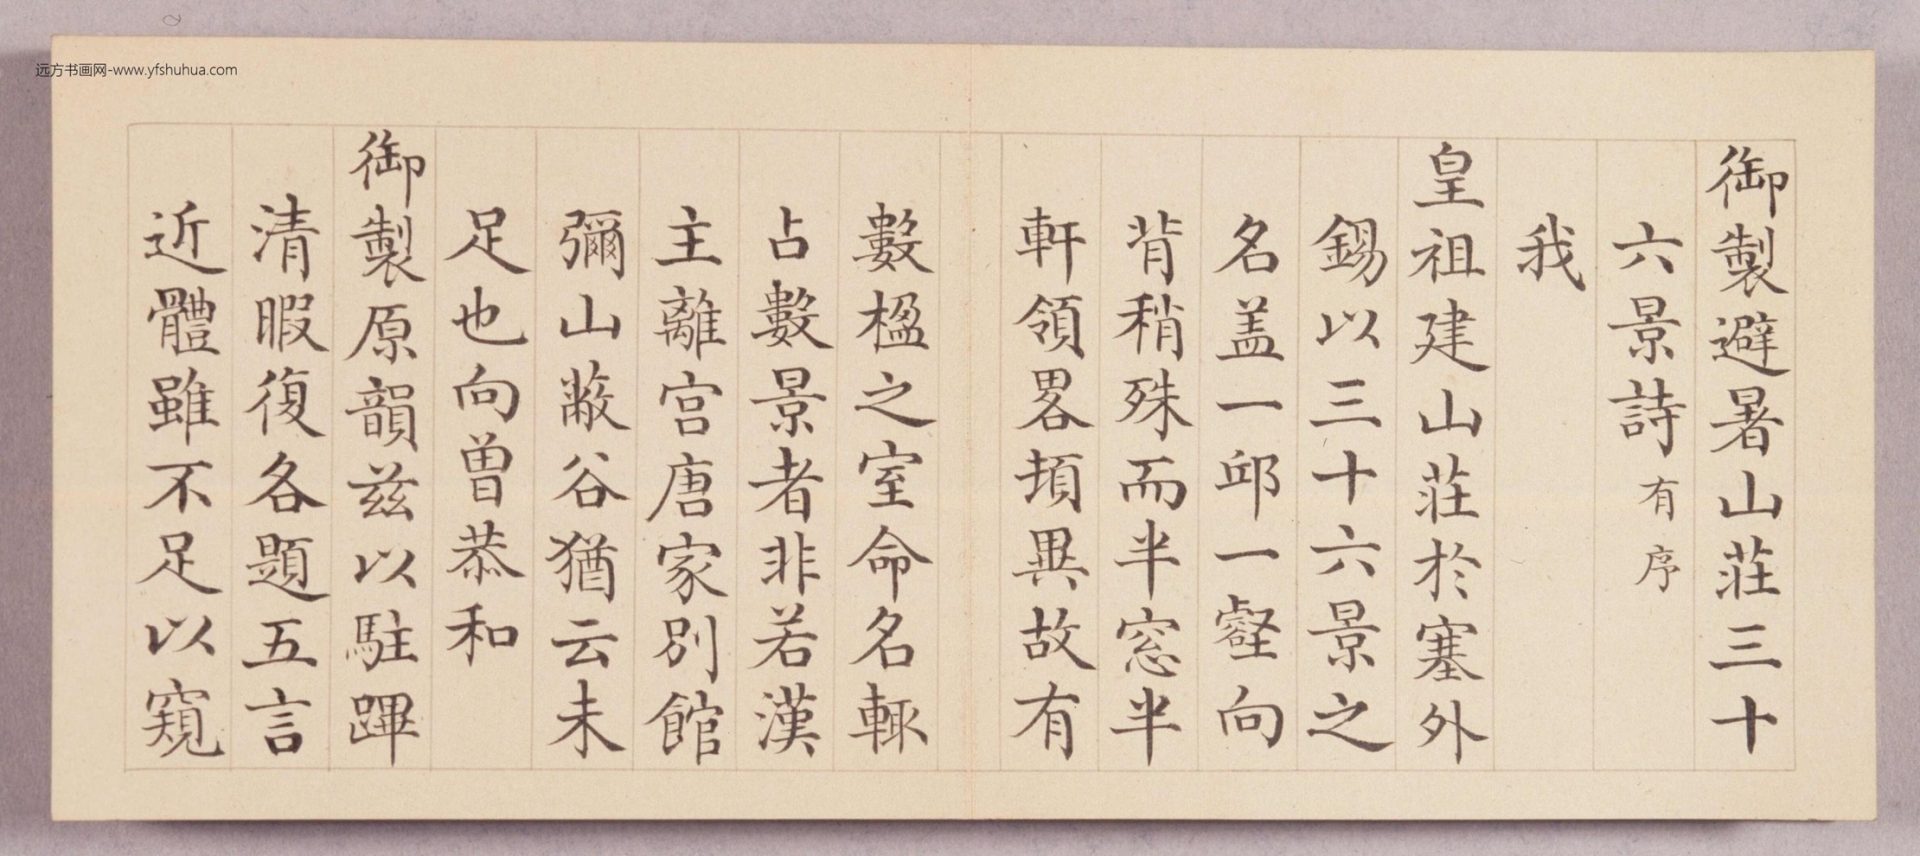 远方书画网-www.yfshuhua.com
御製避暑山莊三十
六景詩有序
我
皇祖建山莊於塞外
錫以三十六景之
名盖一邱一壑向
背稍殊而半窓半
軒領畧頓異故有
數楹之室命名輙
占數景者非若漢
主離宫唐家别館
彌山蔽谷猶云未
足也向曽恭和
御製原韻兹以駐蹕
清暇復各題五言
近體雖不足以窺